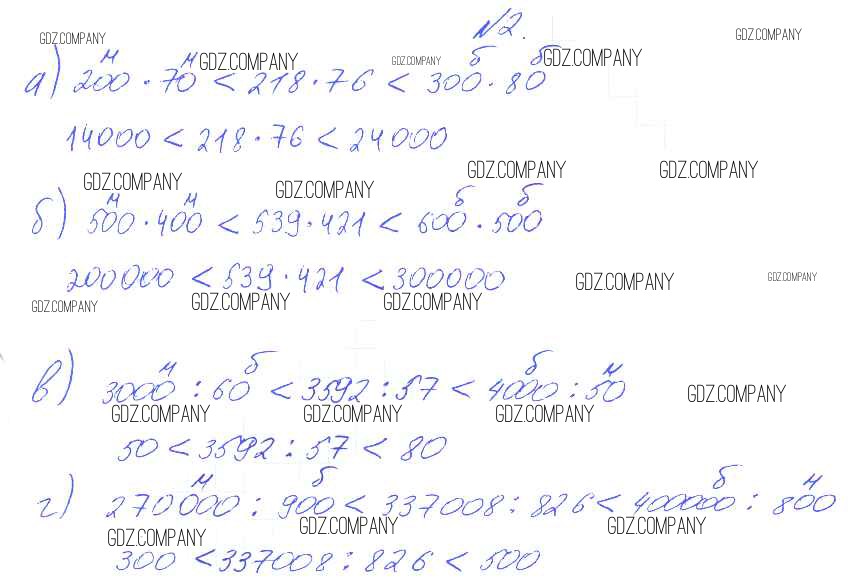 №2.
GDZ.COMPANY GDZ.COMPANY
м м GDZ.COMPANY GDZ.COMPANY б б GDZ.COMPANY
а) 200 · 70 < 218 · 76 < 300 · 80
14000 < 218 · 76 < 24000
GDZ.COMPANY GDZ.COMPANY GDZ.COMPANY GDZ.COMPANY
м м б б
б) 500 · 400 < 539 · 421 < 600 · 500
200000 < 539 · 421 < 300000 GDZ.COMPANY GDZ.COMPANY
GDZ.COMPANY GDZ.COMPANY GDZ.COMPANY
м б б м
в) 3000 : 60 < 3592 : 57 < 4000 : 50 GDZ.COMPANY
GDZ.COMPANY GDZ.COMPANY GDZ.COMPANY
50 < 3592 : 57 < 80
м б б м
г) 270000 : 900 < 337008 : 826 < 400000 : 800
GDZ.COMPANY GDZ.COMPANY GDZ.COMPANY
300 < 337008 : 826 < 500